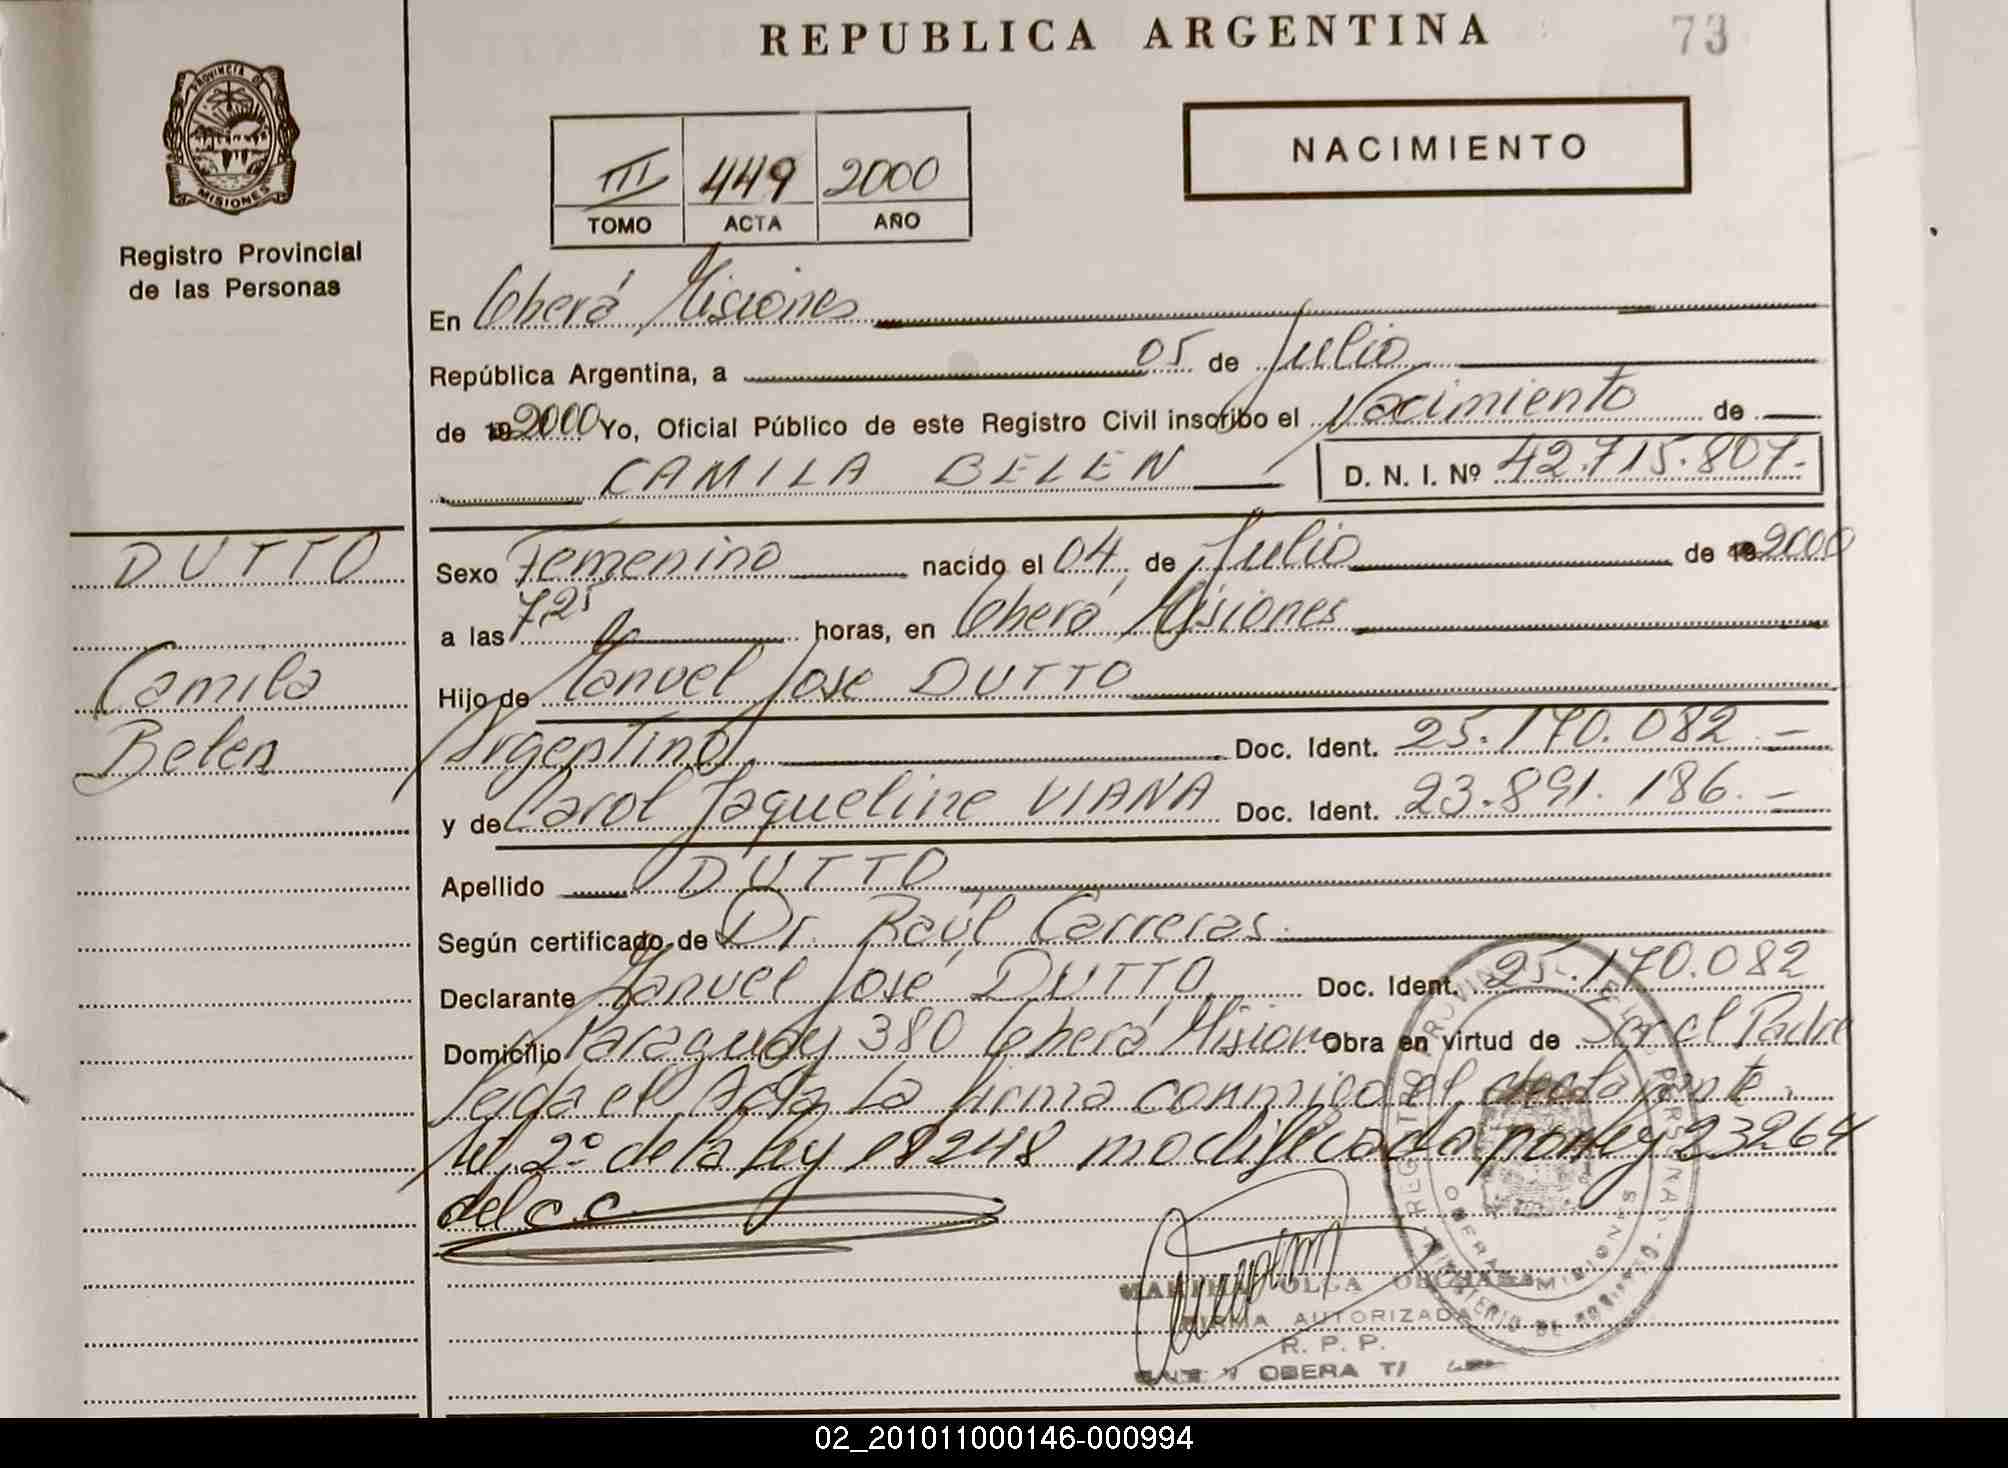 REPUBLICA ARGENTINA
73
PROVINCIA DE
MISIONES
Registro Provincial
de las Personas
III 449 2000
TOMO ACTA AÑO
NACIMIENTO
En Oberá Misiones
República Argentina, a 05 de Julio
de 19 2000 Yo, Oficial Público de este Registro Civil inscribo el Nacimiento de
CAMILA BELEN D. N. I. Nº 42.715.807.-
DUTTO
Camila
Belen
Sexo Femenino nacido el 04 de Julio de 19 2000
a las 7,25 horas, en Oberá Misiones
Hijo de Manuel José DUTTO
Argentino Doc. Ident. 25.170.082.-
y de Carol Jaqueline VIANA Doc. Ident. 23.891.186.-
Apellido DUTTO
Según certificado de Dr. Raúl Carreras.
Declarante Manuel José DUTTO Doc. Ident. 25.170.082
Domicilio Paraguay 380 Oberá Mision Obra en virtud de Ser el Padre
Leida el Acta La firma conmigo el declarante.
2º de la Ley 18248 modificada por Ley 23264
del C.C.
REGISTRO PROVINCIAL DE LAS PERSONAS
OBERA MISIONES
MINISTERIO DE
MARTHA OLGA
FIRMA AUTORIZADA
R. P. P.
OBERA
02_201011000146-000994